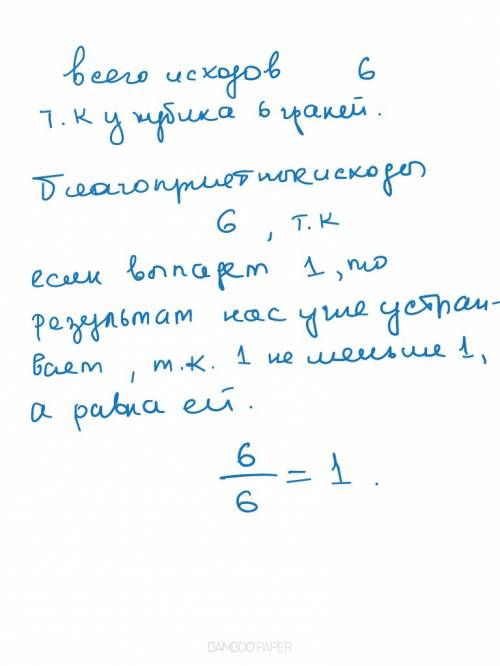 всего исходов 6
т.к у кубика 6 граней.
Благоприятные исходы
6, т.к
если выпадет 1, то
результат нас уже устраи-
вает, т.к. 1 не меньше 1,
а равна ей.
6
6 = 1.
BAMBOOPAPER